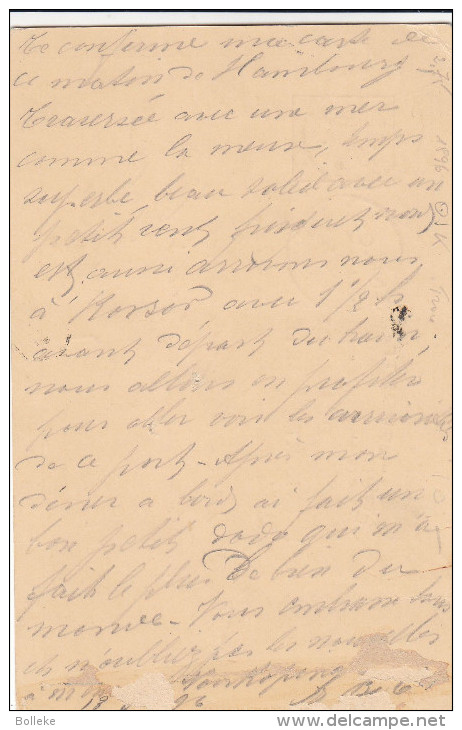 Te confirme ma carte de
ce matin de Hambourg
Traversée avec une mer
comme la meuse, temps
superbe beau soleil avec un
petit vent
est, aussi arrivons nous
à Korsor avec 1 1/2 h
avant départ du train.
nous allons en profiter
pour aller voir les
de ce port - Après mon
diner a bord, ai fait un
bon petit dodo qui m'a
fait le plus de bien du
monde - Vous embrasse tous
et n'oubliez pas les nouvelles
à
96
1896
Bolleke
www.delcampe.net